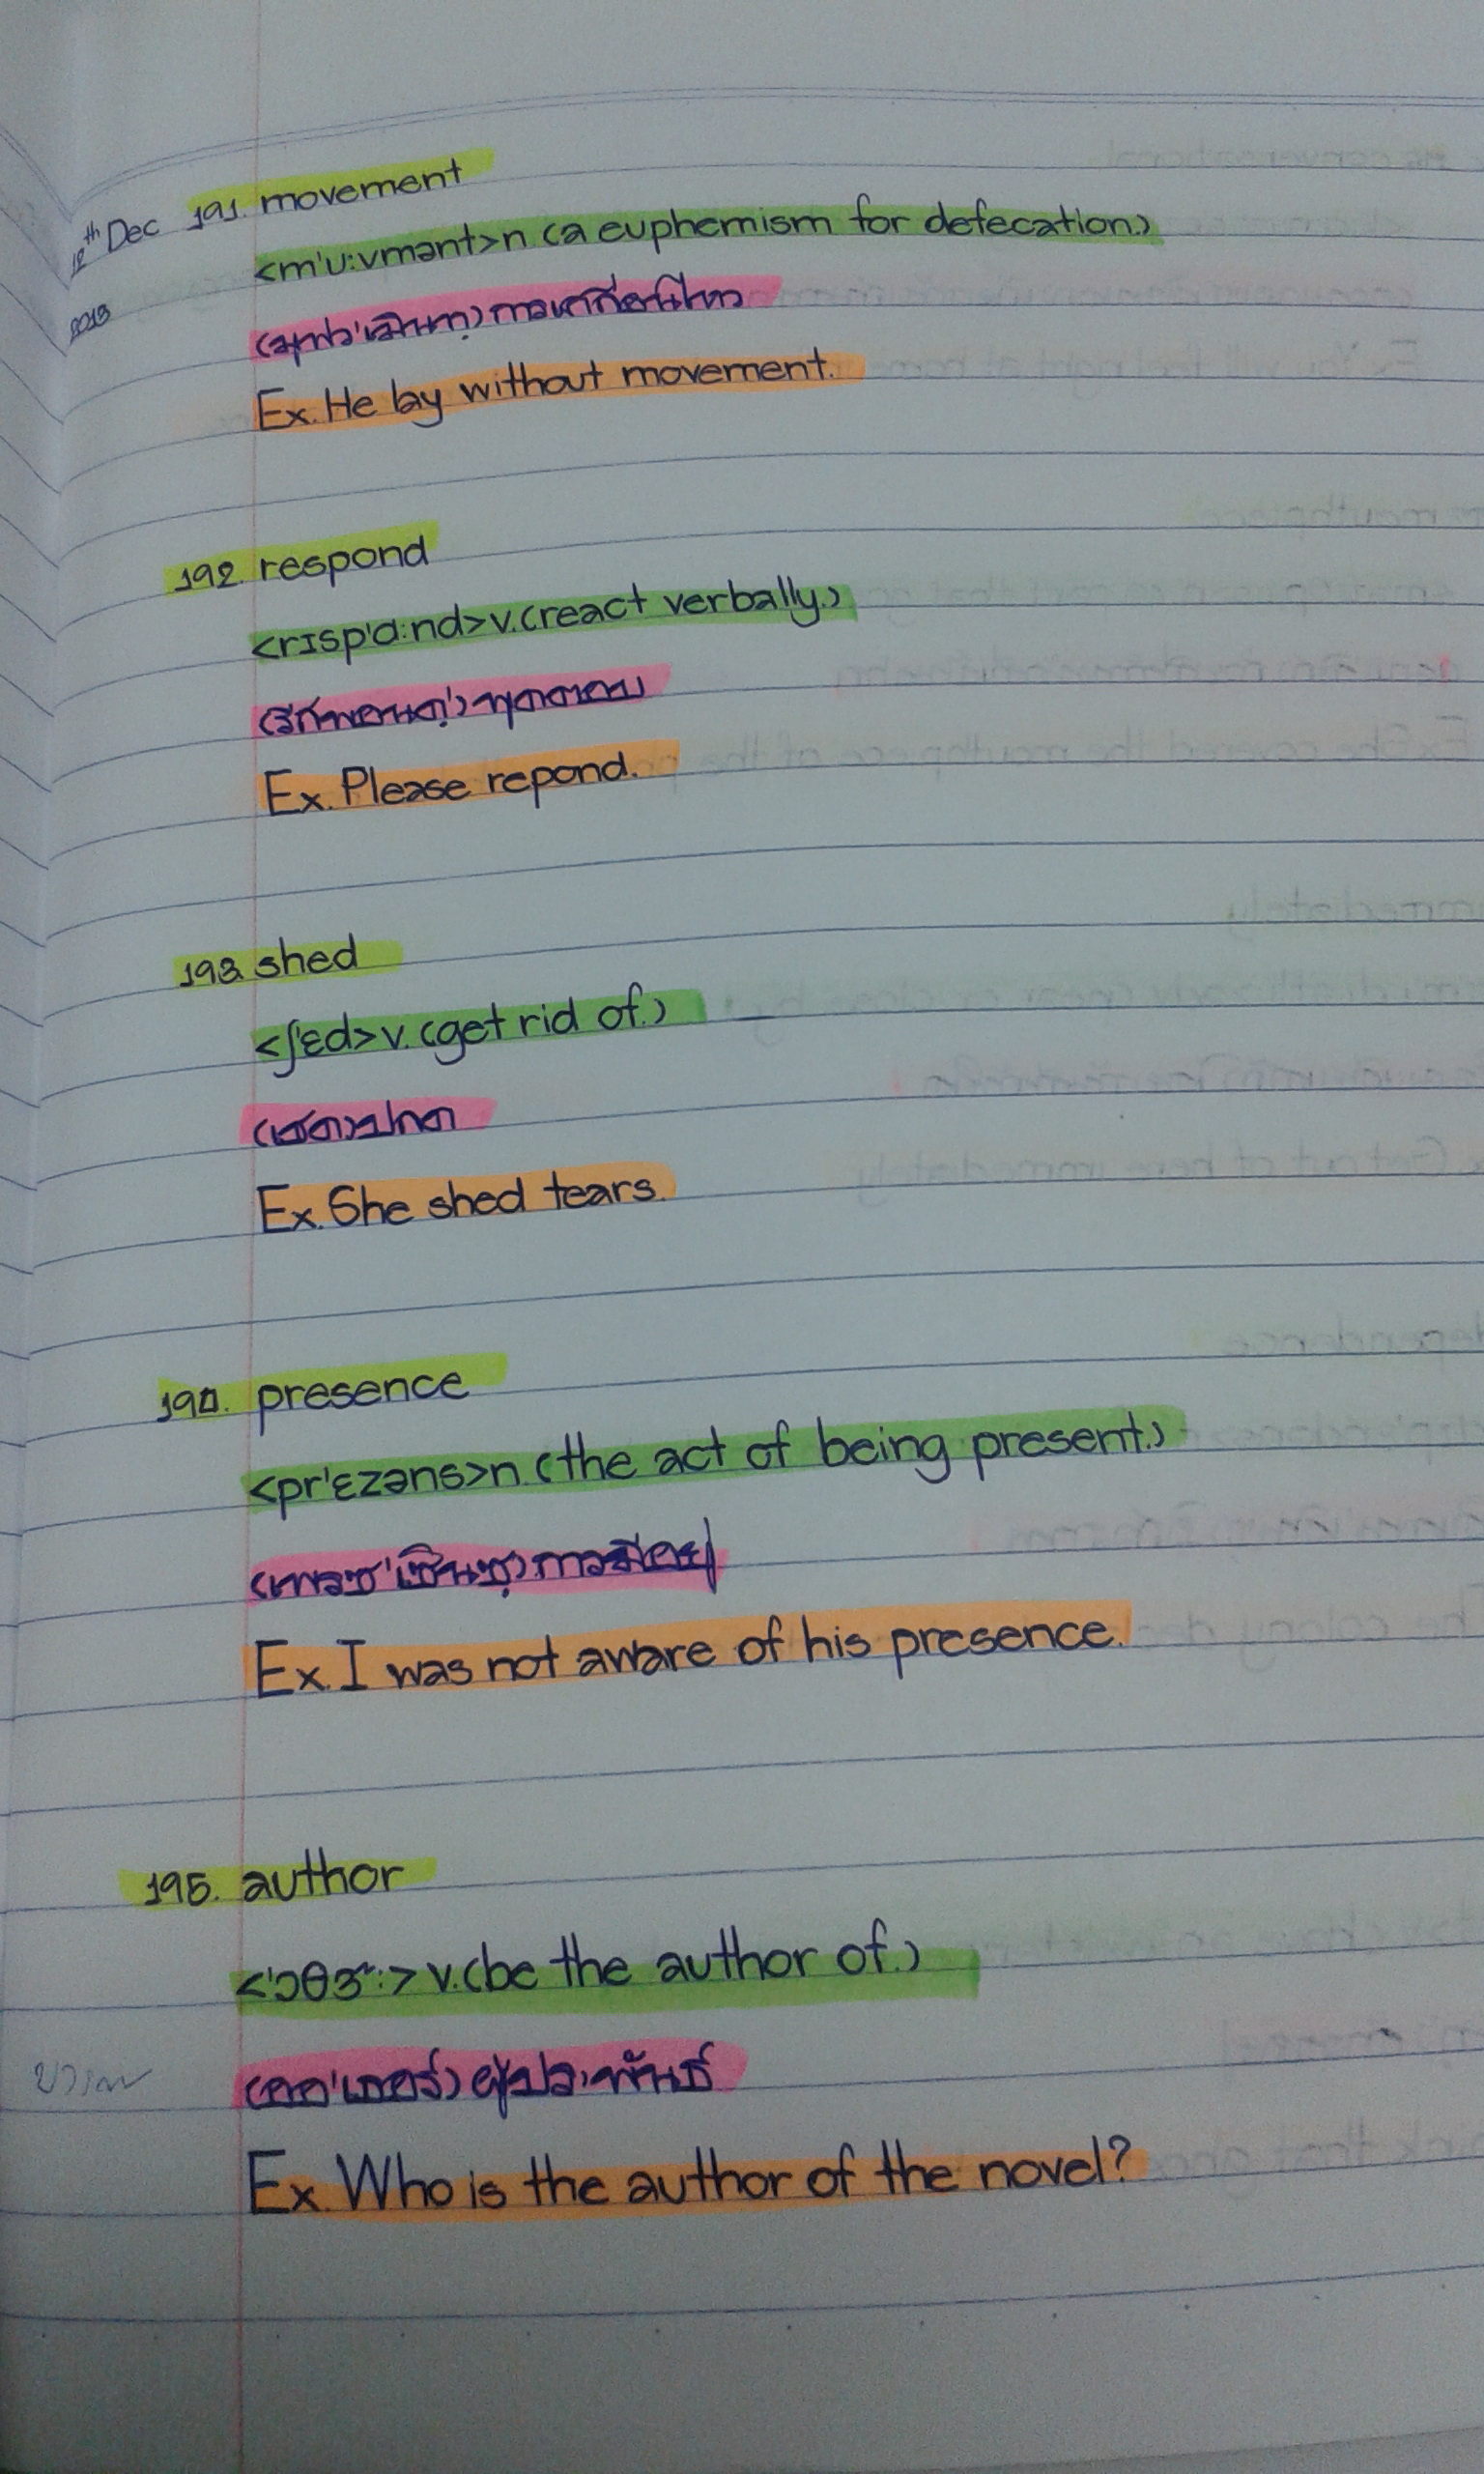 12th Dec 191. movement
2013
<m'u:vmənt>n (a euphemism for defecation.)
(มูฟว'เมินทฺ) การเคลื่อนไหว
Ex. He lay without movement.
192. respond
<rɪsp'ɑ:nd>v.(react verbally.)
(ริสพอนดฺ) พูดตอบ
Ex. Please repond.
193. shed
<ʃ'ɛd>v. (get rid of.)
(เชด)
Ex. She shed tears.
194. presence
<pr'ɛzəns>n. (the act of being present.)
(เพรซ'เซินซฺ) การมีอยู่
Ex. I was not aware of his presence.
195. author
<'ɔθɝ:> v.(be the author of.)
(ออ'เธอร์) ผู้ประพันธ์
Ex. Who is the author of the novel?